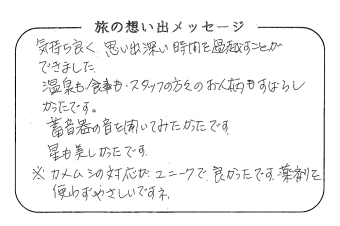 旅の想い出メッセージ
気持ち良く、思い出深い時間を過ごすことが
できました。
温泉も食事も、スタッフの方々のお人柄もすばらし
かったです。
蓄音器の音を聞いてみたかったです。
星も美しかったです。
※カメムシの対応が、ユニークで、良かったです。薬剤を
使わずやさしいですネ。